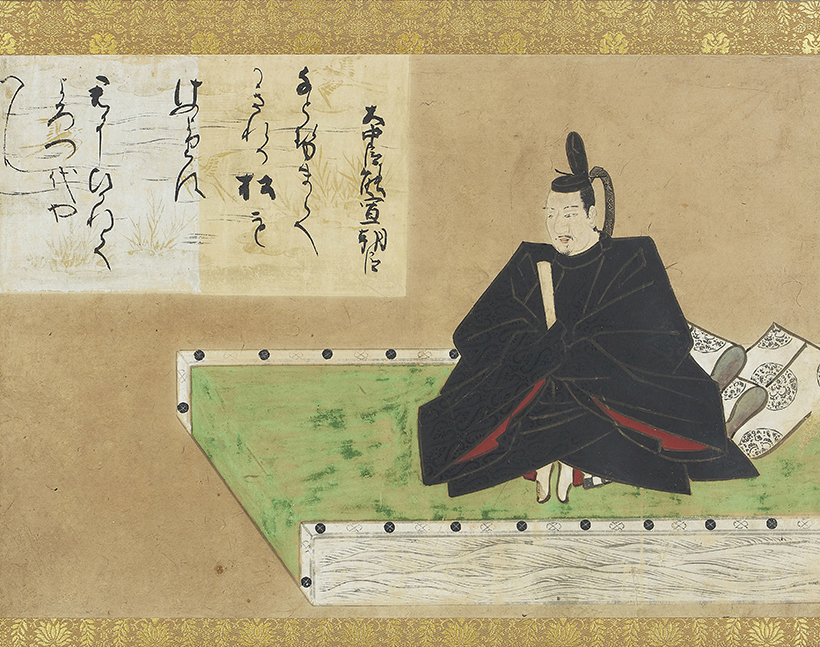 大中臣能宣朝臣
ちとせまて
かきれる松も
けふよりは
君にひかれて
よろつ代や
へむ